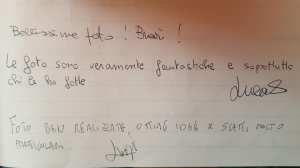 Bellissime foto! Bravi!
Le foto sono veramente fantastiche e soprattutto
chi le ha fatte
FOTO BEN REALIZZATE, OTTIME IDEE X SCATTI, MOLTO
PARTICOLARI